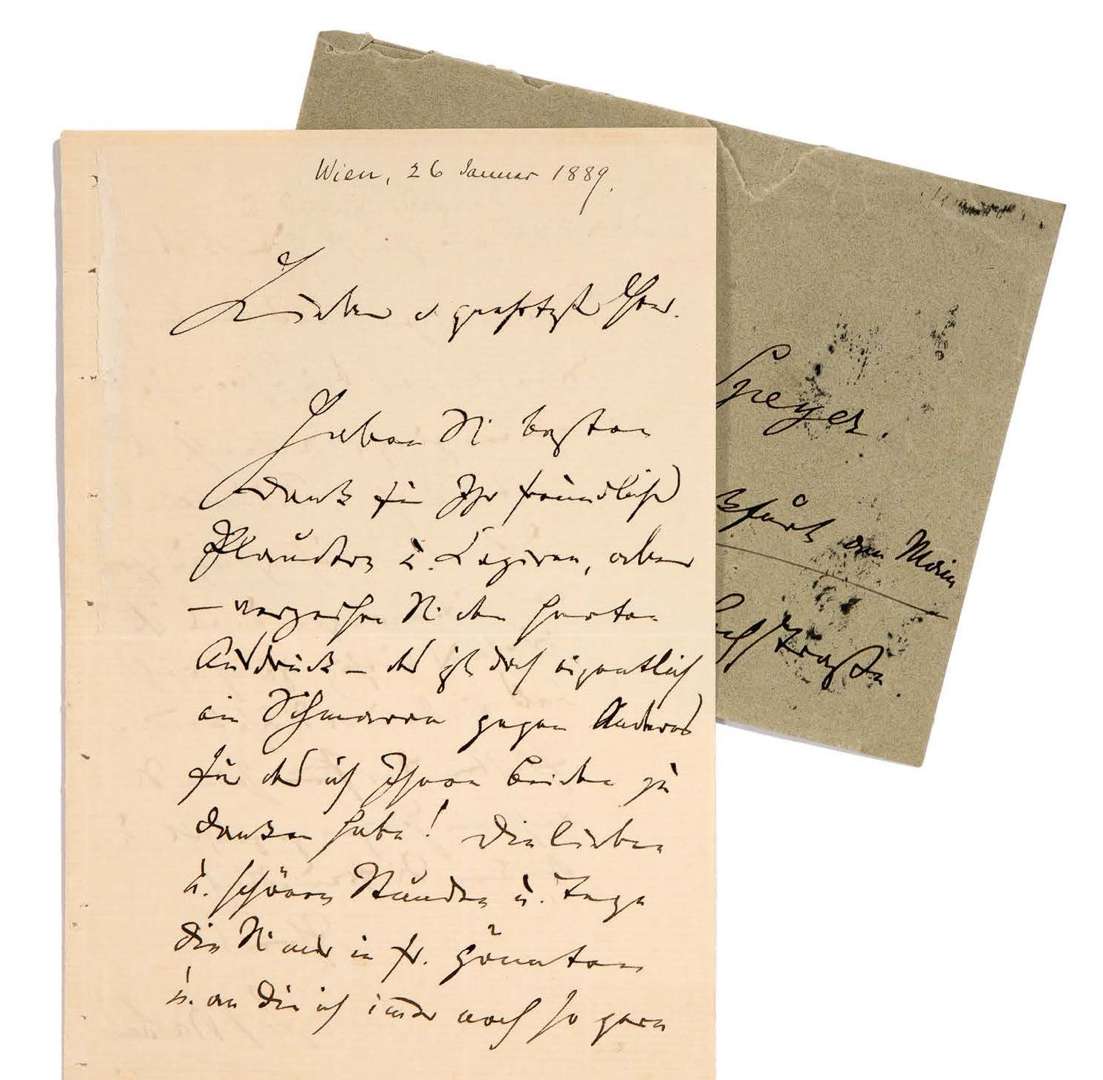 Wien, 26 Januar 1889.
Lieber u. Herr.
Haben Sie besten
Dank für Ihr freundliches
Plaudern u. Copiren, aber
— verzeihen Sie den harten
Ausdruck — das ist doch eigentlich
ein Schmarren gegen Anderes
für das ich Ihnen Beiden zu
danken habe! Die lieben
u. schönen Stunden u. Tage
die Sie mir in Fr. gönnten
u. an die ich immer noch so gern
Speyer.
kfurt am Main
straße.